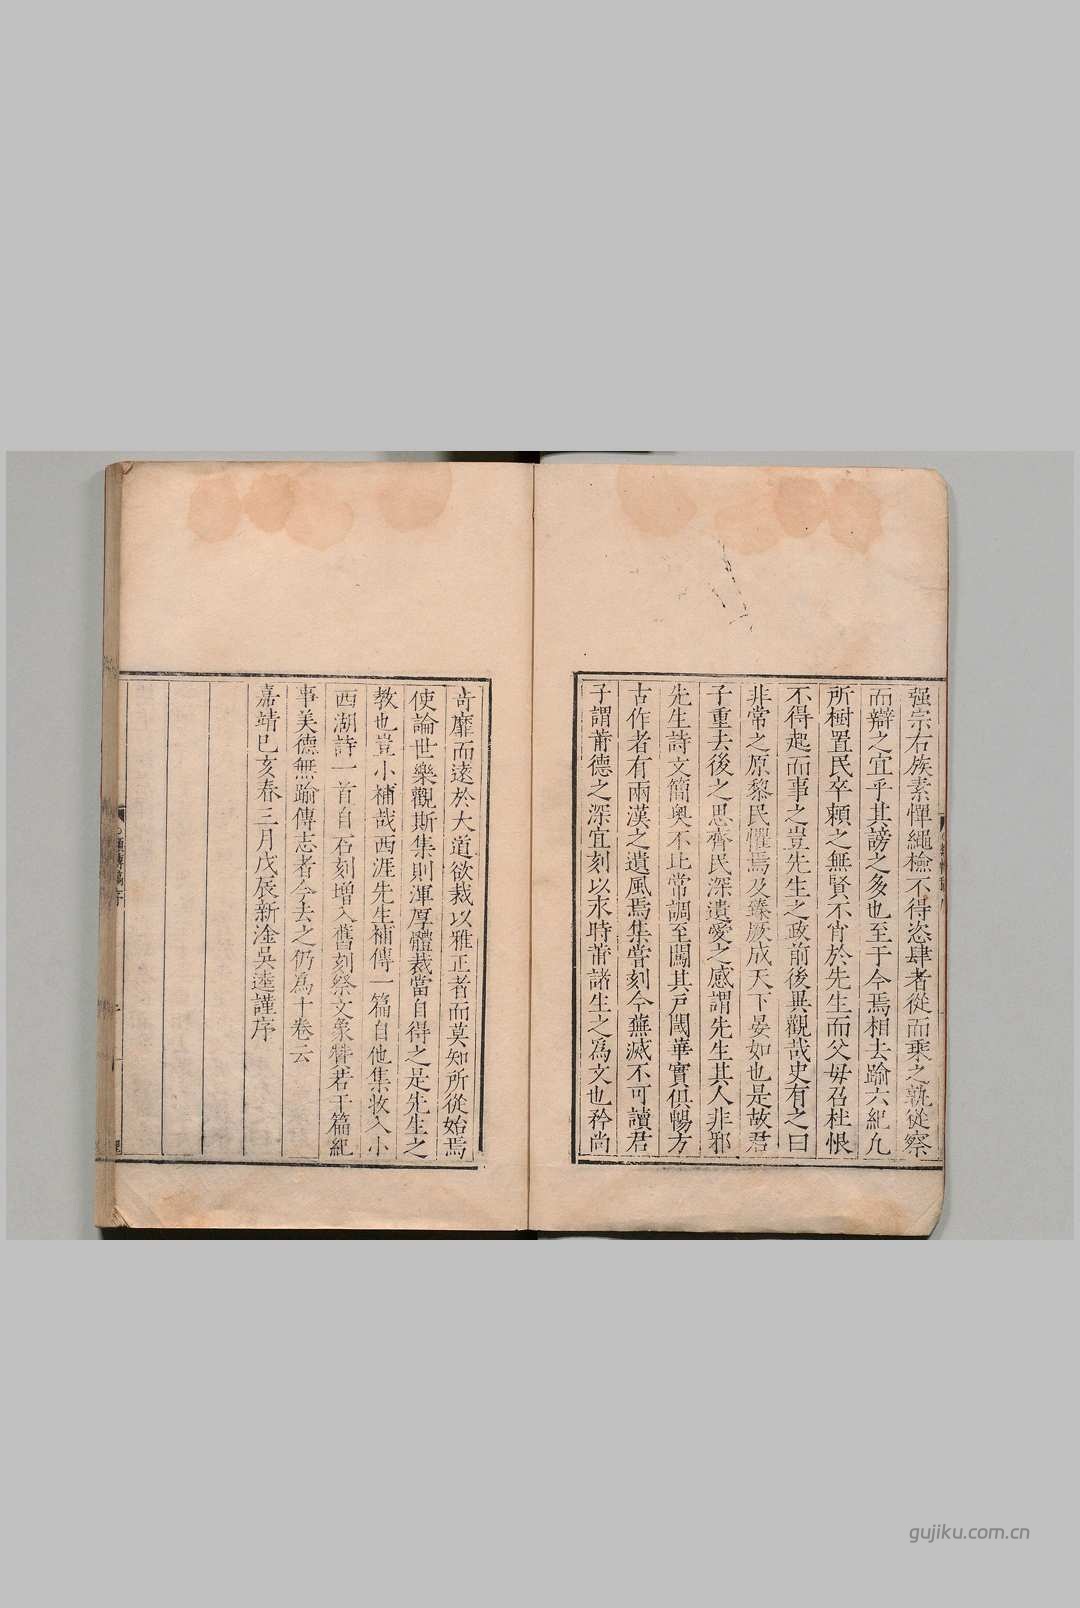 强宗右族素憚繩檢不得恣肆者從而乗之孰從察
而辯之宜乎其謗之多也至于今焉相去踰六紀凡
所樹置民卒賴之無賢不肖於先生而父母召杜恨
不得起而事之豈先生之政前後異觀哉史有之曰
非常之原黎民懼焉及臻厥成天下晏如也是故君
子重去後之思齊民深遺愛之感謂先生其人非邪
先生詩文簡奥不止常調至闖其戸閾華實俱暢方
古作者有兩漢之遺風焉集嘗刻今蕪滅不可讀君
子謂莆德之深宜刻以永時莆諸生之為文也矜尚
奇靡而逺於大道欲裁以雅正者而莫知所從始焉
使論世樂觀斯集則渾厚體裁當自得之是先生之
教也豈小補哉西涯先生補傳一篇自他集收入小
西湖詩一首自石刻増入舊刻祭文象贊若干篇紀
事美德無踰傳志者今去之仍為十卷云
嘉靖己亥春三月戊辰新淦吳逵謹序
gujiku.com.cn